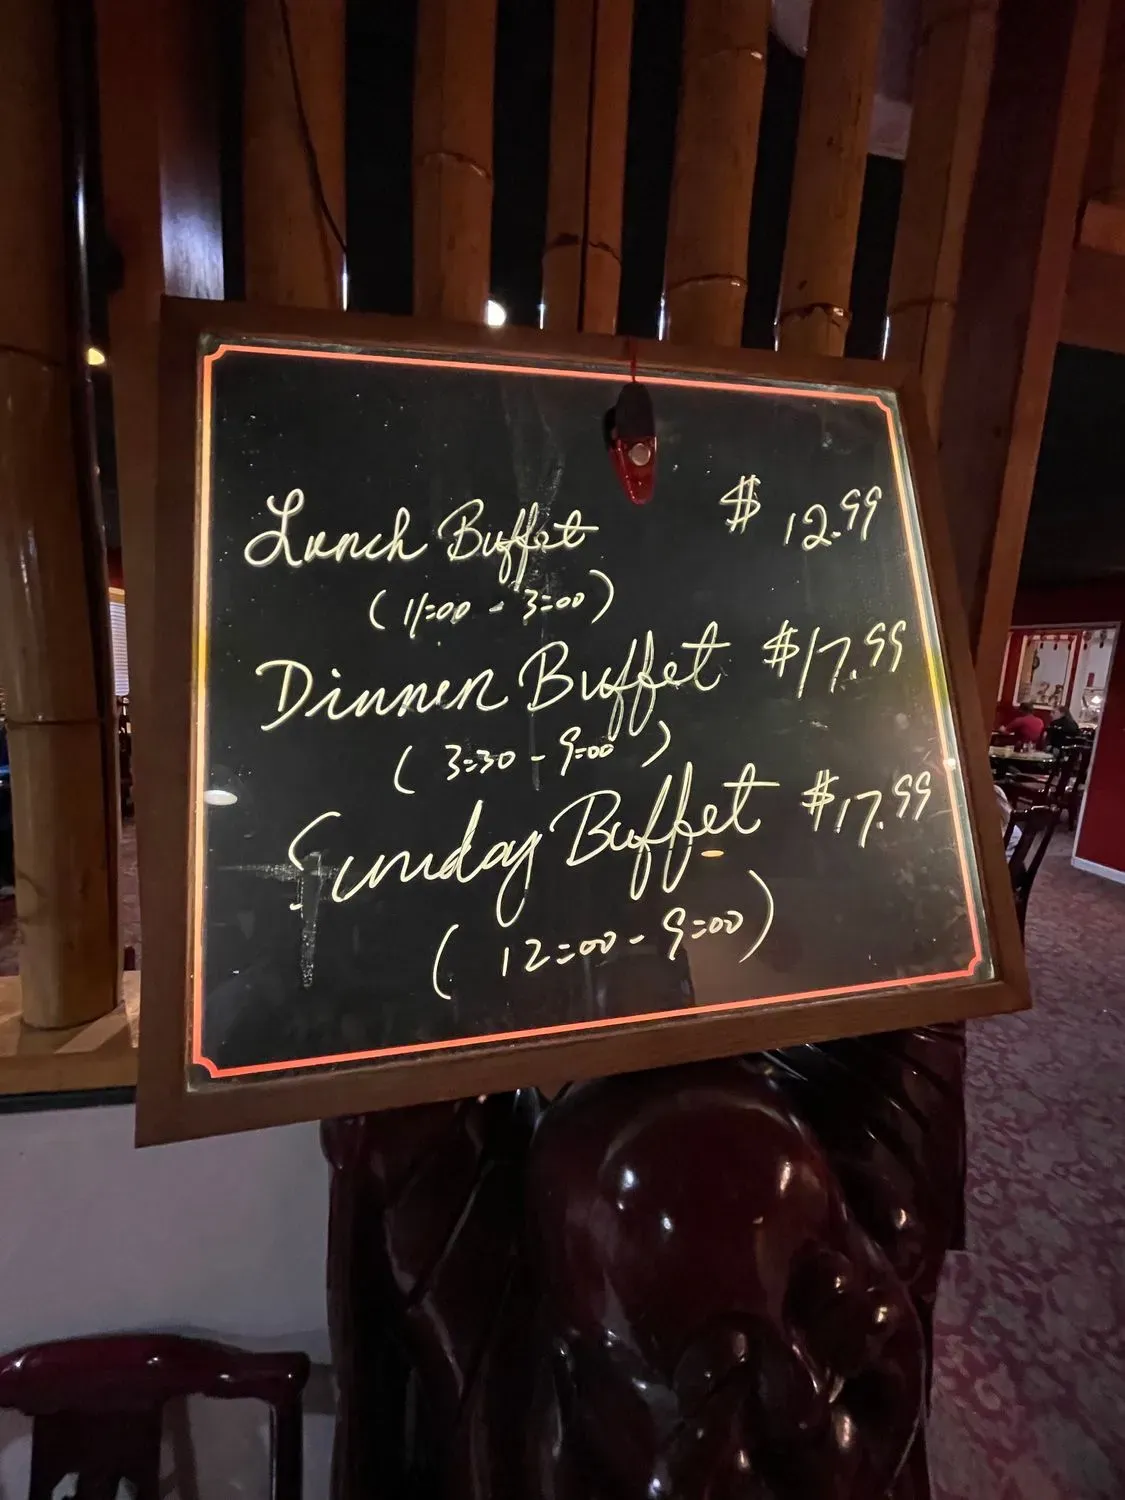 Lunch Buffet $12.99
(11:00 - 3:00)
Dinner Buffet $17.99
(3:30 - 9:00)
Sunday Buffet $17.99
(12:00 - 9:00)